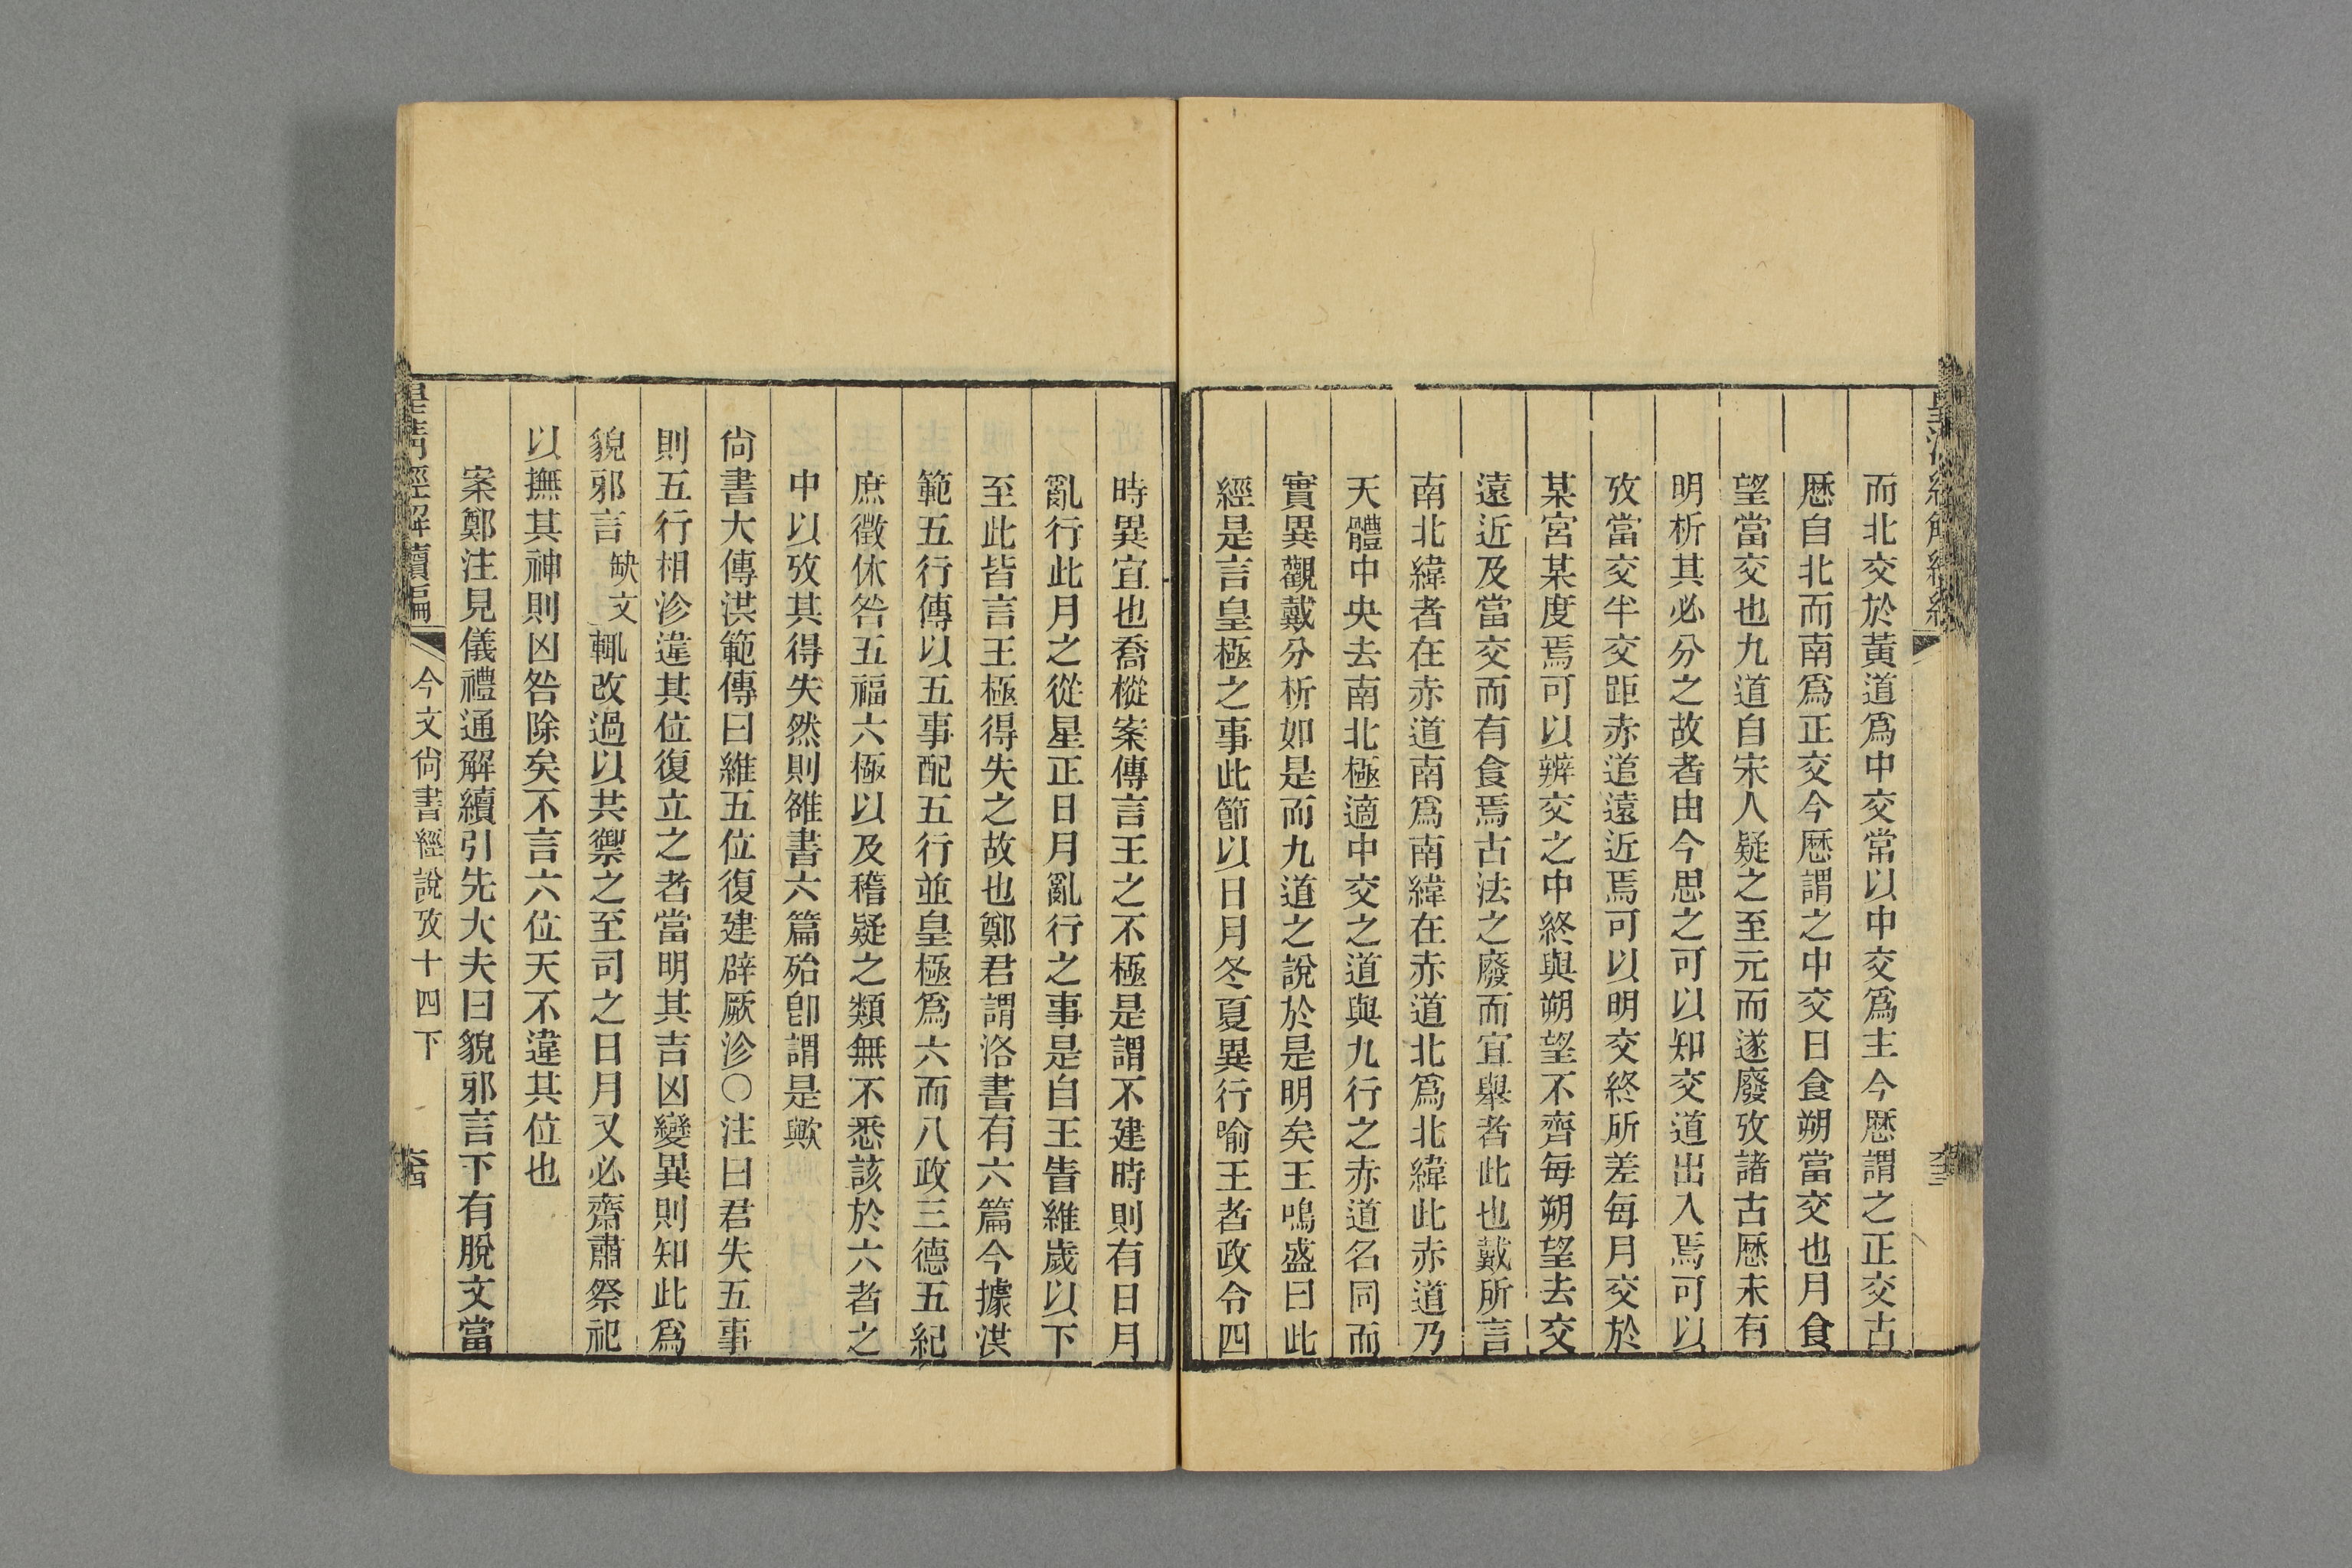 而北交於黃道爲中交常以中交爲主今厯謂之正交古
厯自北而南爲正交今厯謂之中交日食朔當交也月食
望當交也九道自宋人疑之至元而遂廢攷諸古厯未有
明析其必分之故者由今思之可以知交道出入焉可以
攷當交半交距赤道遠近焉可以明交終所差每月交於
某宮某度焉可以辨交之中終與朔望不齊每朔望去交
遠近及當交而有食焉古法之廢而宜舉者此也戴所言
南北緯者在赤道南爲南緯在赤道北爲北緯此赤道乃
天體中央去南北極適中交之道與九行之赤道名同而
實異觀戴分析如是而九道之說於是明矣王鳴盛曰此
經是言皇極之事此節以日月冬夏異行喻王者政令四
時異宜也喬樅案傳言王之不極是謂不建時則有日月
亂行此月之從星正日月亂行之事是自王眚維歲以下
至此皆言王極得失之故也鄭君謂洛書有六篇今據洪
範五行傳以五事配五行並皇極爲六而八政三德五紀
庶徵休咎五福六極以及稽疑之類無不悉該於六者之
中以攷其得失然則雒書六篇殆卽謂是歟
尙書大傳洪範傳曰維五位復建辟厥沴〇注曰君失五事
則五行相沴違其位復立之者當明其吉凶變異則知此爲
貌邪言缺文輒改過以共禦之至司之日月又必齋肅祭祀
以撫其神則凶咎除矣不言六位天不違其位也
案鄭注見儀禮通解續引先大夫曰貌邪言下有脫文當
皇清經解續編
今文尙書經說攷十四下